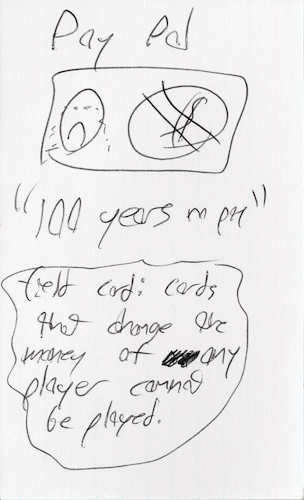 Pay Pal
"100 years mph"
field card: cards
that change the
money of any
player cannot
be played.